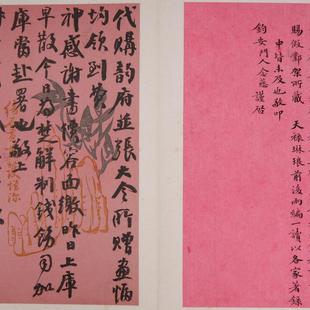 賜假鄴架所藏 天祿琳琅前後兩編一讀以各家著錄
中皆未及也敬叩
鈞安門人謹启
代購韵府並張大令所贈畫幅
均領到費
神感謝書價容面繳昨日上庫
早散今日為楚解制錢飭司加
庫當赴署也敬上